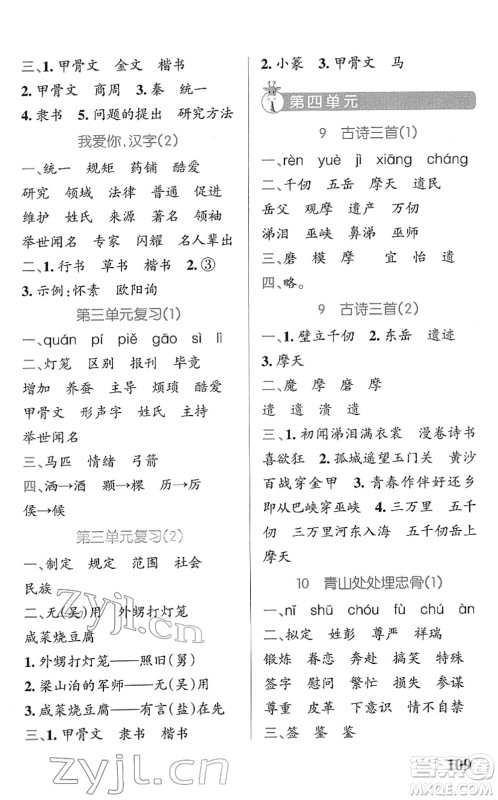 三、1. 甲骨文 金文 楷书
2. 甲骨文 商周 3. 秦 统一
4. 隶书 5. 问题的提出 研究方法
我爱你,汉字(2)
一、统一 规矩 药铺 酷爱
研究 领域 法律 普通 促进
维护 姓氏 来源 著名 领袖
举世闻名 专家 闪耀 名人辈出
二、1. 行书 草书 楷书 2. ③
3. 示例:怀素 欧阳询
第三单元复习(1)
一、quán pí piě gāo sì lì
二、灯笼 区别 报刊 毕竟
增加 养蚕 主导 烦琐 酷爱
甲骨文 形声字 姓氏 主持
举世闻名
三、马匹 情绪 弓箭
四、洒→酒 颗→棵 历→厉
侯→候
第三单元复习(2)
一、制定 规模 范围 社会
民族
二、无(吴)用 外甥打灯笼
咸菜烧豆腐
1. 外甥打灯笼——照旧(舅)
2. 梁山泊的军师——无(吴)用
3. 咸菜烧豆腐——有言(盐)在先
三、1. 甲骨文 隶书 楷书
2. 小篆 3. 甲骨文 马
第四单元
9 古诗三首(1)
一、rèn yuè jì xiāng cháng
二、千仞 五岳 摩天 遗民
岳父 观摩 遗产 万仞
涕泪 巫峡 鼻涕 巫师
三、磨 模 摩 宜 怡 遗
四、略。
9 古诗三首(2)
一、1. 壁立千仞 2. 东岳 遗迹
3. 摩天
二、魔 摩 磨
遗 遣 溃
三、1. 初闻涕泪满衣裳 漫卷诗书
喜欲狂 2. 孤城遥望玉门关 黄沙
百战穿金甲 3. 青春作伴好还乡
即从巴峡穿巫峡 4. 三万里 五千
仞 三万里河东入海 五千仞岳上
摩天
10 青山处处埋忠骨(1)
一、nǐ shū chóu fù cù jiàn
二、拟定 姓彭 尊严 祥瑞
锻炼 眷恋 奔赴 搞笑 特殊
签字 慰问 繁忙 损失 参谋
尊重 皮革 下意识 情不自禁
三、签 鉴 鉴
109
Zyjl.cn
zyjl.cn
答案圈
MXQE.COM